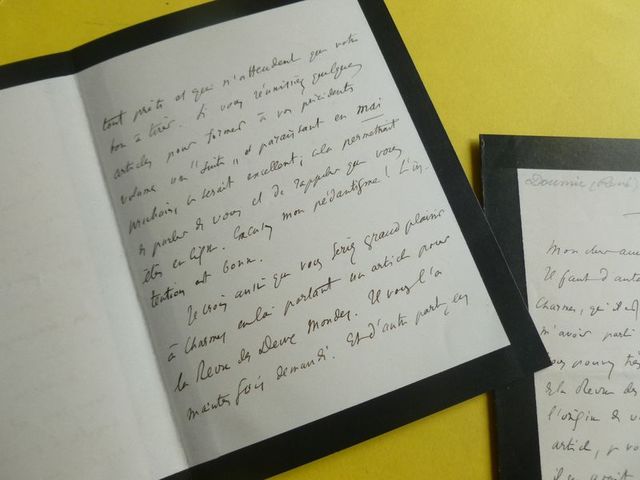 tout prêts et qui n'attendent que votre
bon à tirer. Si vous réunissiez quelques
articles pour former à vos précédents
volumes un "Suite" et paraissant en mai
prochain, ce serait excellent; cela permettrait
de parler de vous et de rappeler que vous
êtes en ligne. Excusez mon pédantisme! L'in-
tention est bonne.
Je crois aussi que vous feriez grand plaisir
à Charmes en lui portant un article pour
la Revue des Deux Mondes. Je vous l'a
maintes fois demandé. Et d'autre part, en
Doumic (René)
Mon cher ami
Il faut d'auta
Charmes, qu'il
m'avoir parti
vous pouvez très
de la Revue des
l'origine de v
article, q vo
il y avait